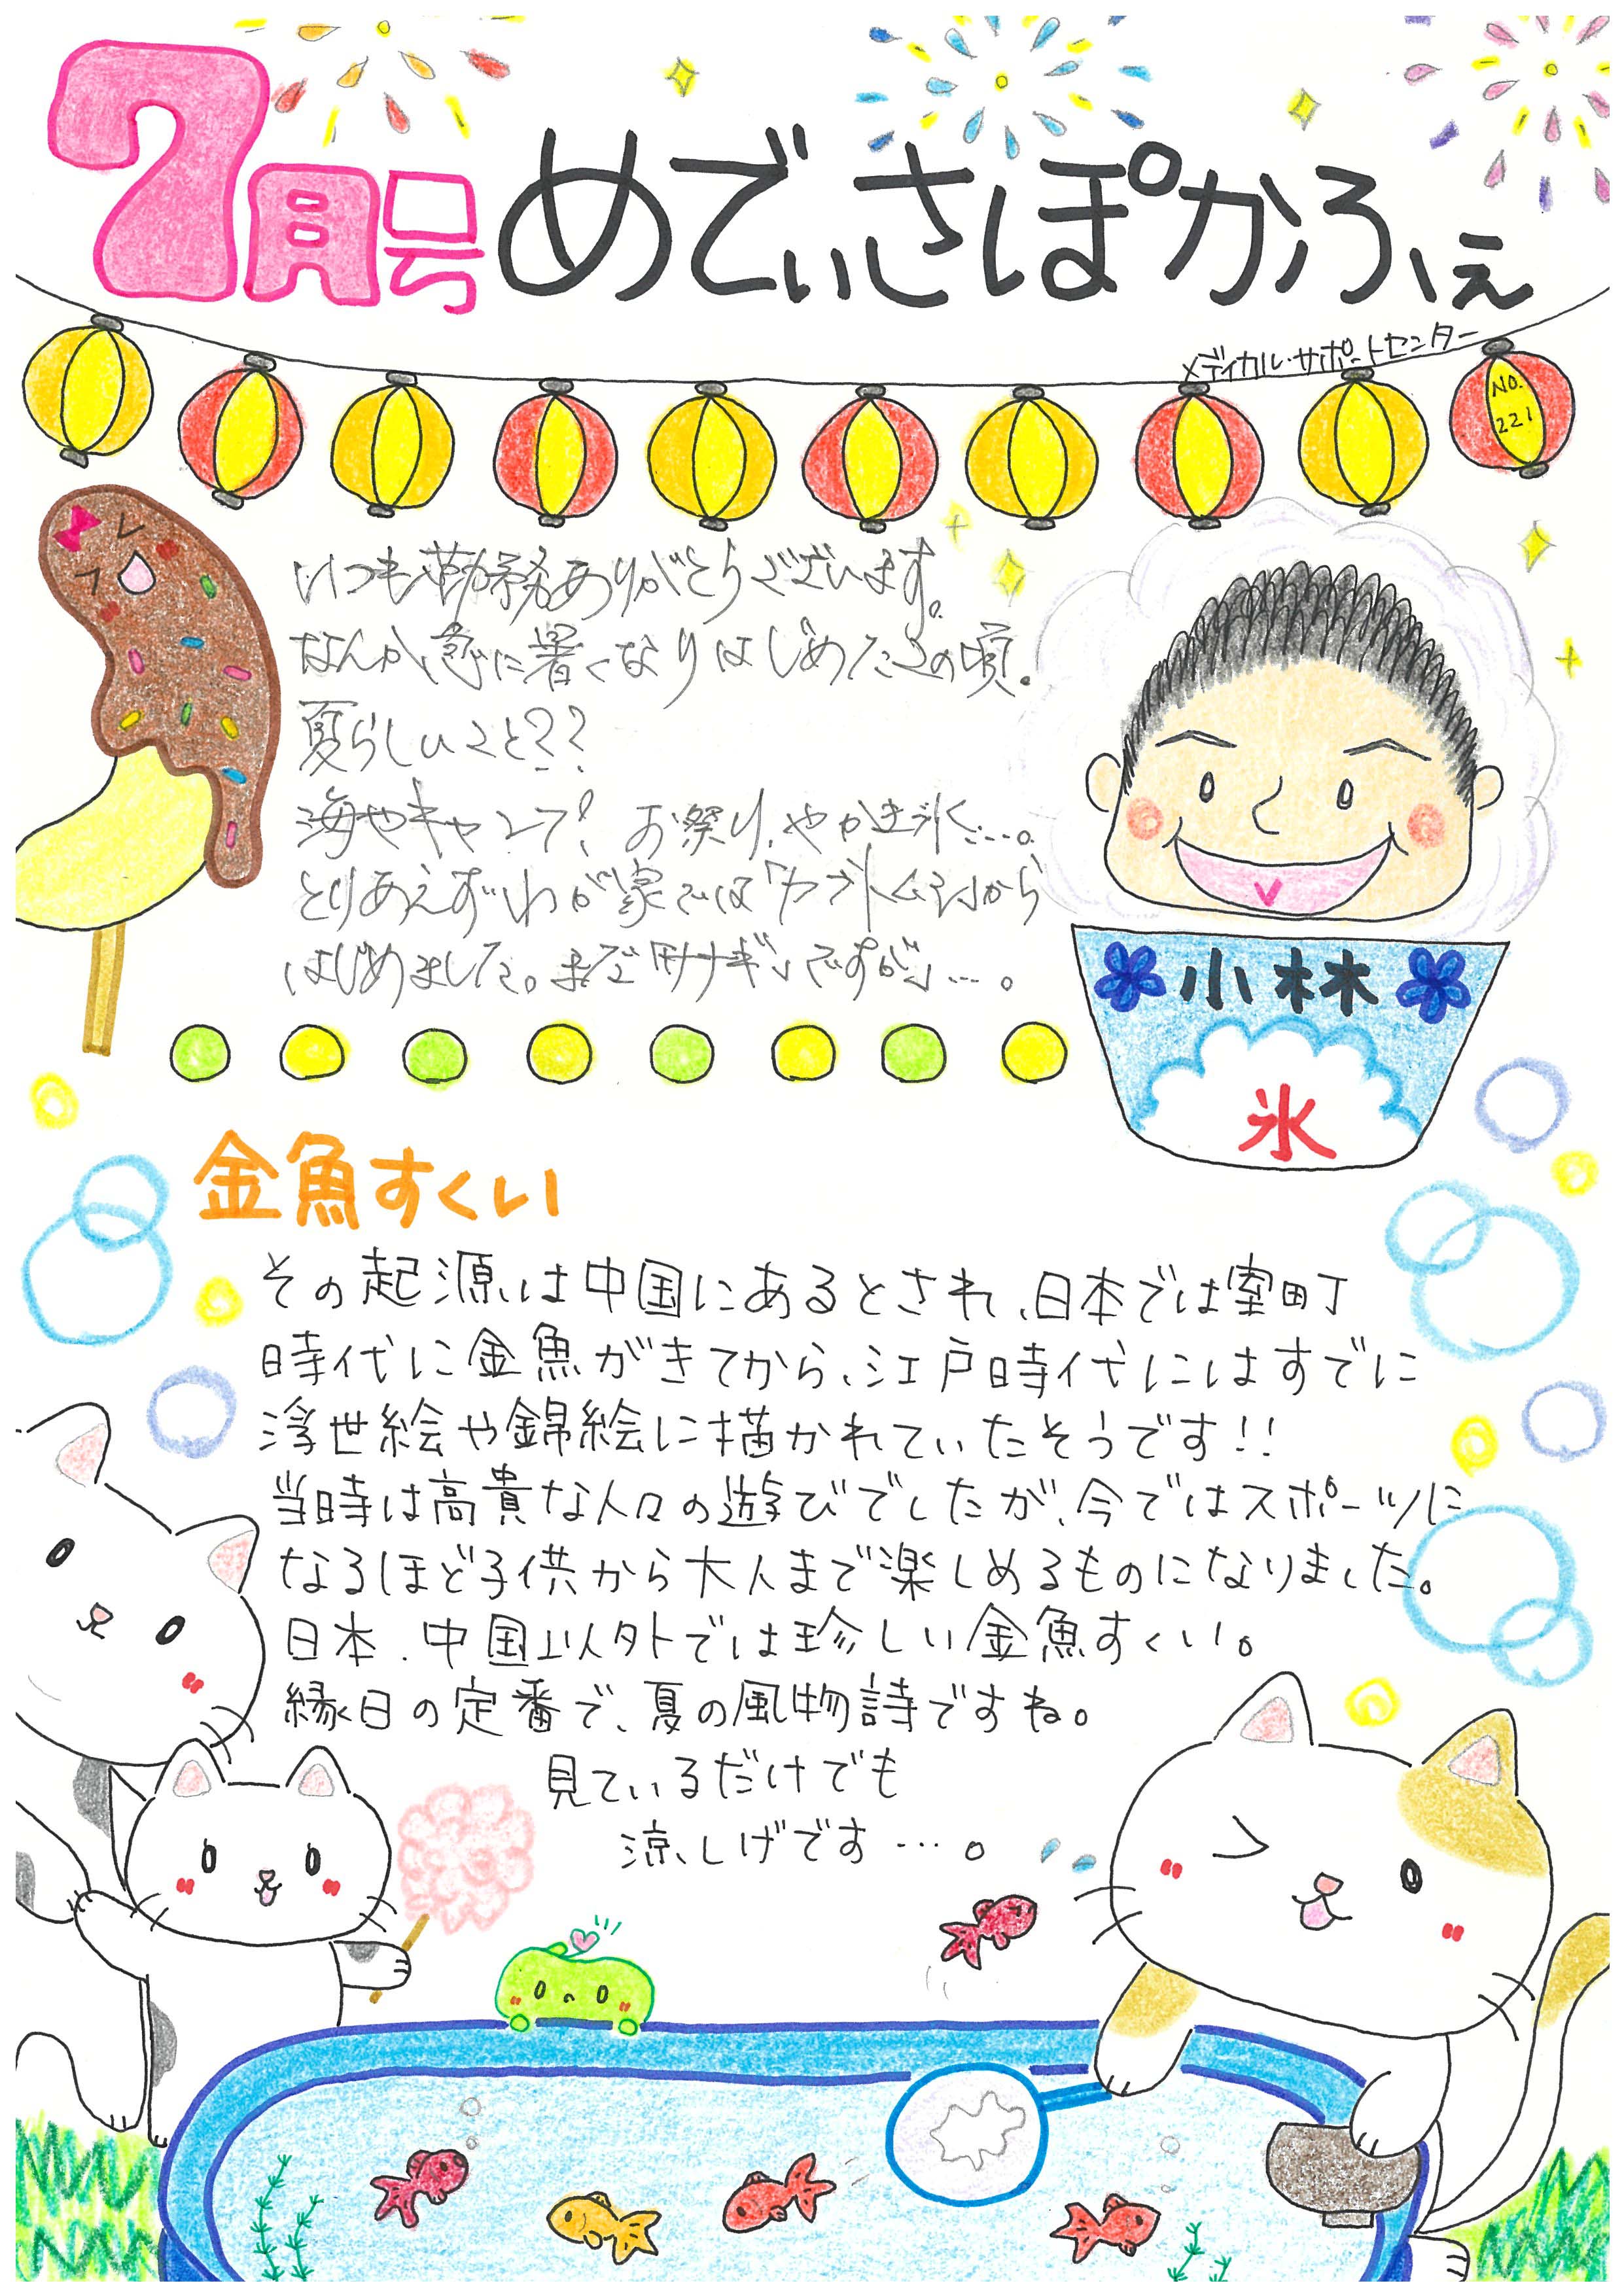 7月号 めでぃさぽかふぇ
メディカル・サポートセンター
NO.
221
いつも勤務ありがとうございます。
なんか急に暑くなりはじめたこの頃。
夏らしいこと??
海やキャンプ! お祭り、やかき氷…。
とりあえずわが家では「カブトムシ」から
はじめました。まだ「サナギ」ですが…。
小林
氷
金魚すくい
その起源は中国にあるとされ、日本では室町
時代に金魚がきてから、江戸時代にはすでに
浮世絵や錦絵に描かれていたそうです!!
当時は高貴な人々の遊びでしたが、今ではスポーツに
なるほど子供から大人まで楽しめるものになりました。
日本、中国以外では珍しい金魚すくい。
縁日の定番で、夏の風物詩ですね。
見ているだけでも
涼しげです…。